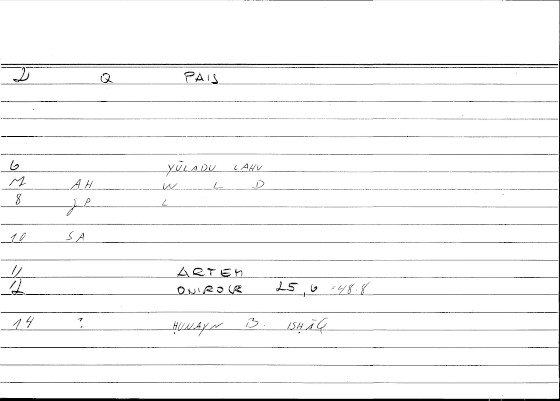 2 Q PAIS
6 YŪLADU LAHU
M AH W L D
8 JP L
10 SA
11 ARTEM
12 ONIROCR 25,6-48.8
14 ? ḤUNAYN B. ISḤĀQ